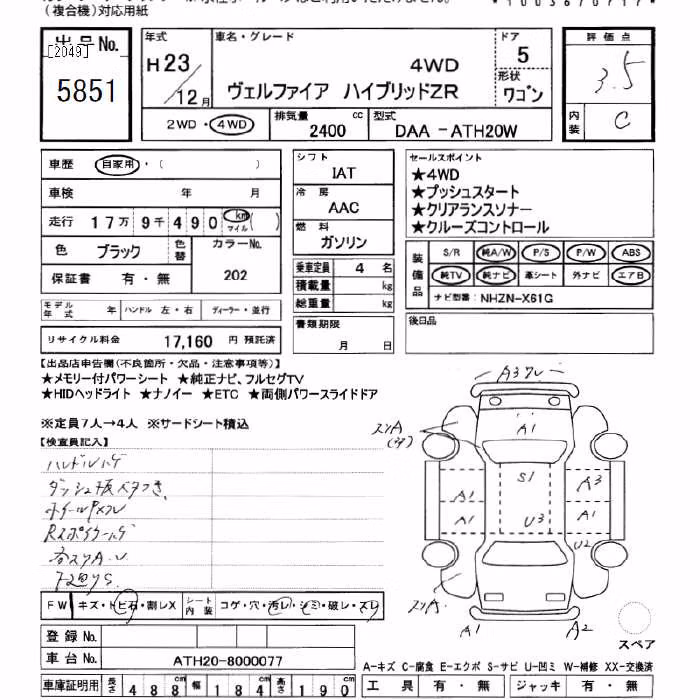 (複合機)対応用紙
出品No.
[2049]
5851
年式
H23/12月
車名・グレード
4WD
ヴェルファイア ハイブリッドZR
ドア
5
形状
ワゴン
評価点
3.5
内装
C
2WD・4WD
排気量
2400 cc
型式
DAA -ATH20W
車歴 自家用・( )
車検 年 月
走行 17万 9千490 km マイル( )
色 ブラック 色替 カラーNo. 202
保証書 有・無
モデル年式 年 ハンドル 左・右 ディーラー・並行
リサイクル料金 17,160 円 預託済
シフト
IAT
冷房
AAC
燃料
ガソリン
乗車定員 4 名
積載量 kg
総重量 kg
書類期限
月 日
セールスポイント
★4WD
★プッシュスタート
★クリアランスソナー
★クルーズコントロール
装備品
S/R 純A/W P/S P/W ABS
純TV 純ナビ 革シート 外ナビ エアB
ナビ型番: NHZN-X61G
後日品
【出品店申告欄(不良箇所・欠品・注意事項等)】
★メモリー付パワーシート ★純正ナビ、フルセグTV
★HIDヘッドライト ★ナノイー ★ETC ★両側パワースライドドア
※定員7人→4人 ※サードシート積込
【検査員記入】
ハンドルハゲ
FW キズ・トビ石・割レX シート内装 コゲ・穴・汚レ・シミ・破レ・スレ
登録No.
車台No. ATH20-8000077
車庫証明用 長さ 488cm 幅 184cm 高さ 190cm
A1
S1
A3
A1
A1
A1
U3
U2
A1
A2
スペア
A-キズ C-腐食 E-エクボ S-サビ U-凹ミ W-補修 XX-交換済
工具 有・無 ジャッキ 有・無